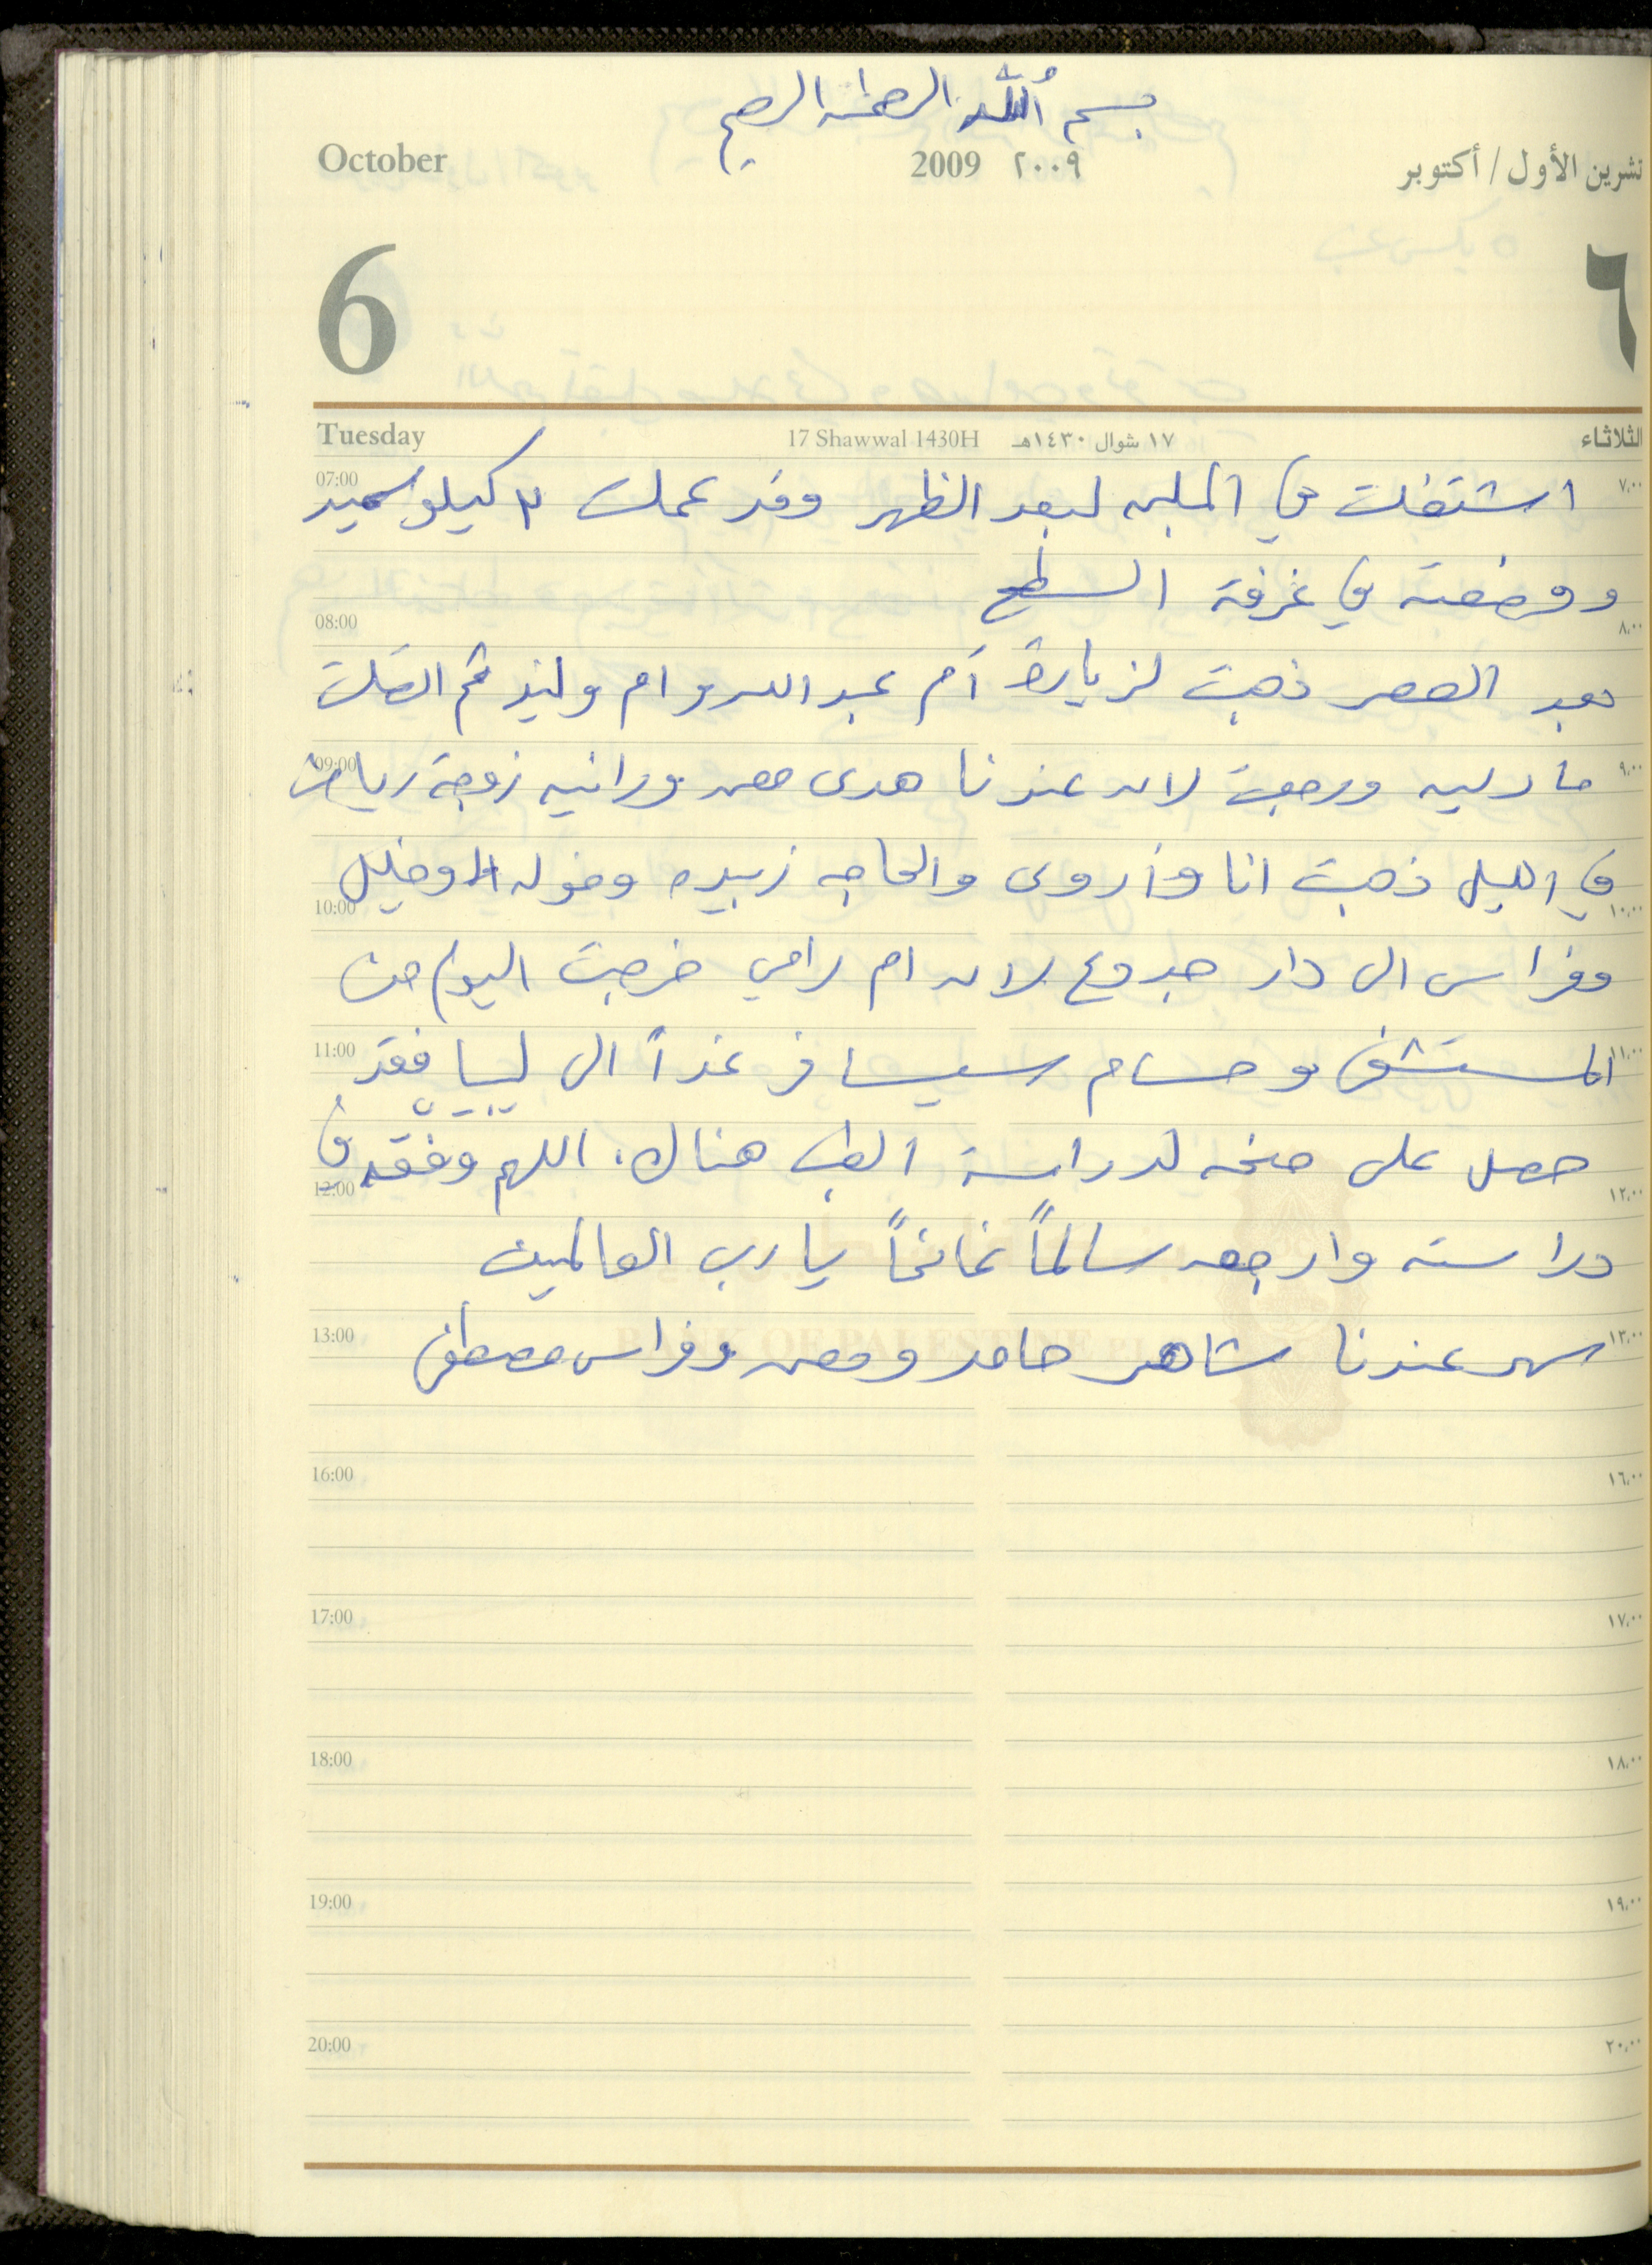 بسم الله الرحمن الرحيم
October 2009 ٢٠٠٩ تشرين الأول / أكتوبر
6 ٦
Tuesday 17 Shawwal 1430H ١٧ شوال ١٤٣٠هـ الثلاثاء
07:00 اشتغلت في الملبن لبعد الظهر وقد عملت ٢ كيلو سميد ٧,٠٠
ووضعته في غرفة السطح
08:00 ٨,٠٠
بعد العصر ذهبت لزيارة أم عبد الله وام وليد ثم اتصلت
09:00 مادلين ورجعت لان عندنا هدى معن ورانيه زوجة رياض ٩,٠٠
في الليل ذهبت انا وأروى والحاجه زبيده وخوله وخليل
10:00 ١٠,٠٠
وفراس الى دار جدوع لان ام رامي خرجت اليوم من
11:00 المستشفى وحسام سيسافر غداً الى ليبيا فقد ١١,٠٠
حصل على منحه لدراسة الطب هناك. اللهم وفقه في
12:00 ١٢,٠٠
دراسته وارجعه سالماً غانماً يا رب العالمين
13:00 سهر عندنا شاهر حامد ومعن وفراس مصطفى ١٣,٠٠
BANK OF PALESTINE
16:00 ١٦,٠٠
17:00 ١٧,٠٠
18:00 ١٨,٠٠
19:00 ١٩,٠٠
20:00 ٢٠,٠٠